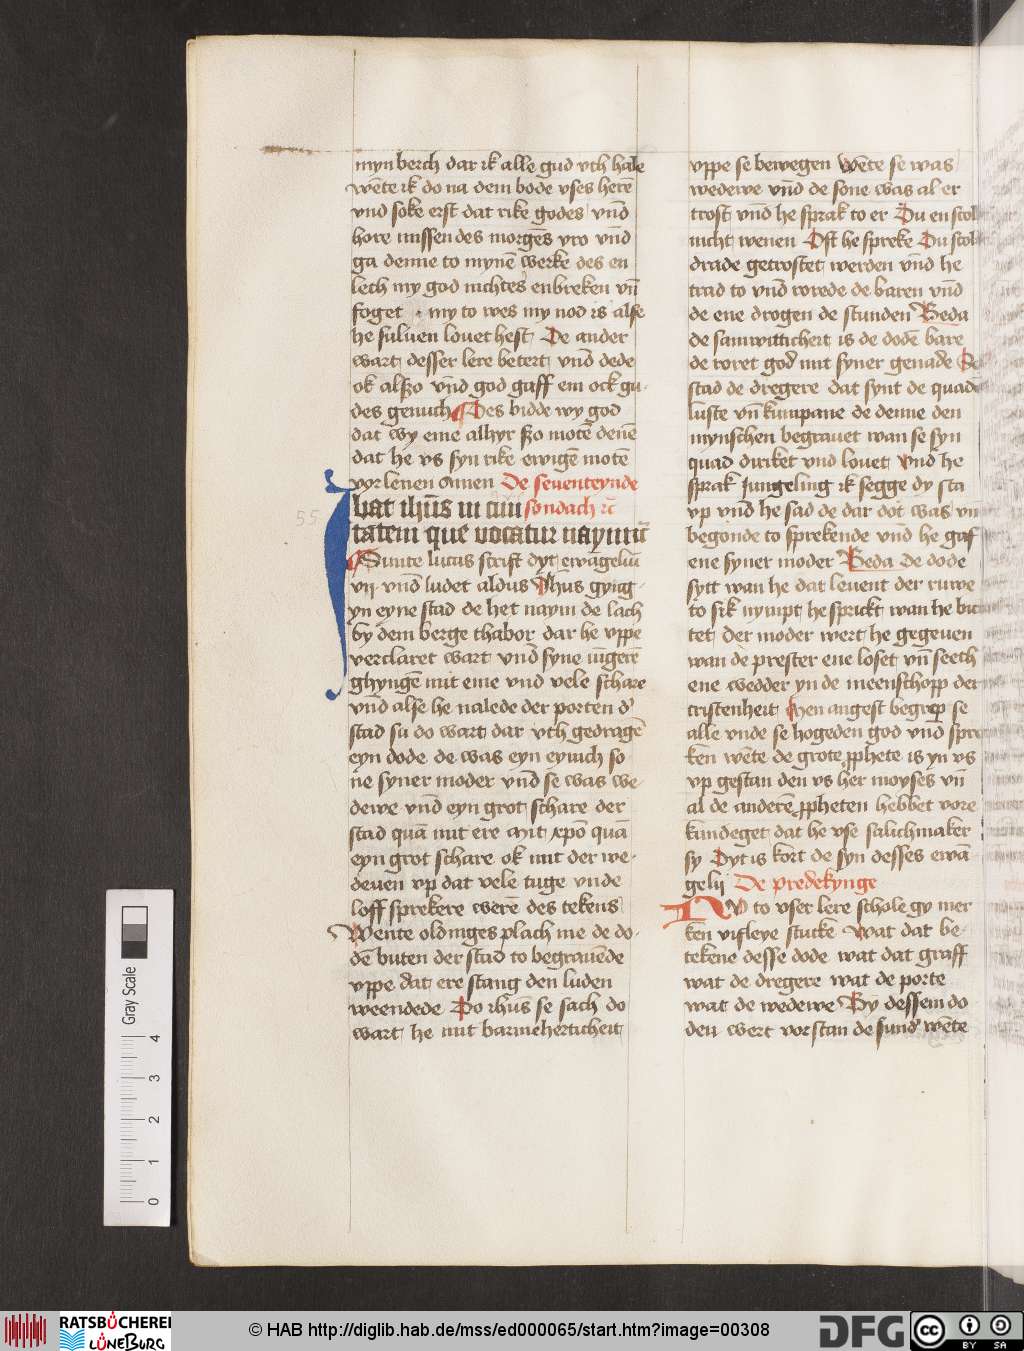 myn berch dar ik alle gud vth hale
wēte ik do na dem bode vses herē
vnd soke erst dat rike godes vnd̄
hore missen des morgēs vro vnd̄
ga denne to mynē werke des en
lech my god nichtes enbreken vn̄
foget my to wes my nod is alse
he suluen louet hest De ander
wart desser lere betert vnd̄ dede
ok alszo vnd̄ god gaff em ock gu
des genuch Des bidde wy god
dat wy eme alhyr szo motē denē
dat he vs syn rike ewigē motē
vorlenen Amen De seuenteynde
Ibat ih̄us in ciui sondach
tatem que vocatur naymm
Sunte lucas scrift dyt ewāgeliū
vij vnd̄ ludet aldus Ih̄us gyng
yn eyne stad de het naym de lach
by dem berge thabor dar he vppe
verclaret wart vnd̄ syne iūgerē
ghyngē mit eme vnd vele schare
vnd̄ alse he nalede der porten d'
stad su do wart dar vth gedragē
eyn dode de was eyn eynich so
ne syner moder vnd̄ se was we
dewe vnd̄ eyn grot schare der
stad quā mit ere Mit xpō quā
eyn grot schare ok mit der we
dewen vp dat vele tuge vnde
loff sprekere werē des tekens
Wente oldinges plach me de do
dē buten der stad to begrauēde
vppe dat ere stang den luden
weendede Do ih̄us se sach do
wart he mit barmeherticheit
vppe se bewegen wēte se was
wedewe vnd de sone was al er
trost vnd̄ he sprak to er Du en scol
nicht wenen Ost he spreke Du scol
drade getrostet werden vnd̄ he
trad to vnd̄ rorede de baren vnd̄
de ene drogen de stunden Beda
de samwitticheit is de dodē bare
de roret god mit syner genade De
stad de dregere dat synt de quade
luste vn̄ kumpane de denne den
mynschen begrauet wan se syn
quad dircket vnd louet vnd he
sprak Jungeling ik segge dy sta
vp vnd̄ he sad de dar dot was vn
begonde to sprekende vnd̄ he gaf
ene syner moder Beda de dode
sytt wan he dat leuent der ruwe
to sik nympt he sprickt wan he bic
tet der moder wert he gegeuen
wan de prester ene loset vn̄ seeth
ene wedder yn de meenschopp der
cristenheit Hen angest begrep se
alle vnde se hogeden god vnd̄ spre
ken wēte de grote pphete is yn vs
vp gestan den vs her moyses vn̄
al de anderē ppheten hebbet vore
kundeget dat he vse salichmaker
sy Dyt is kort de syn desses ewā
gelij De predekynge
NV to vser lere schole gy mer
ken vifleye stucke Wat dat be
tekene desse dode wat dat graff
wat de dregere wat de porte
wat de wedewe By dessem do
den wert vorstan de sund' wēte
55
Gray Scale
4
3
2
1
0
RATSBÜCHEREI
LÜNEBURG
© HAB http://diglib.hab.de/mss/ed000065/start.htm?image=00308
DFG
cc
BY SA